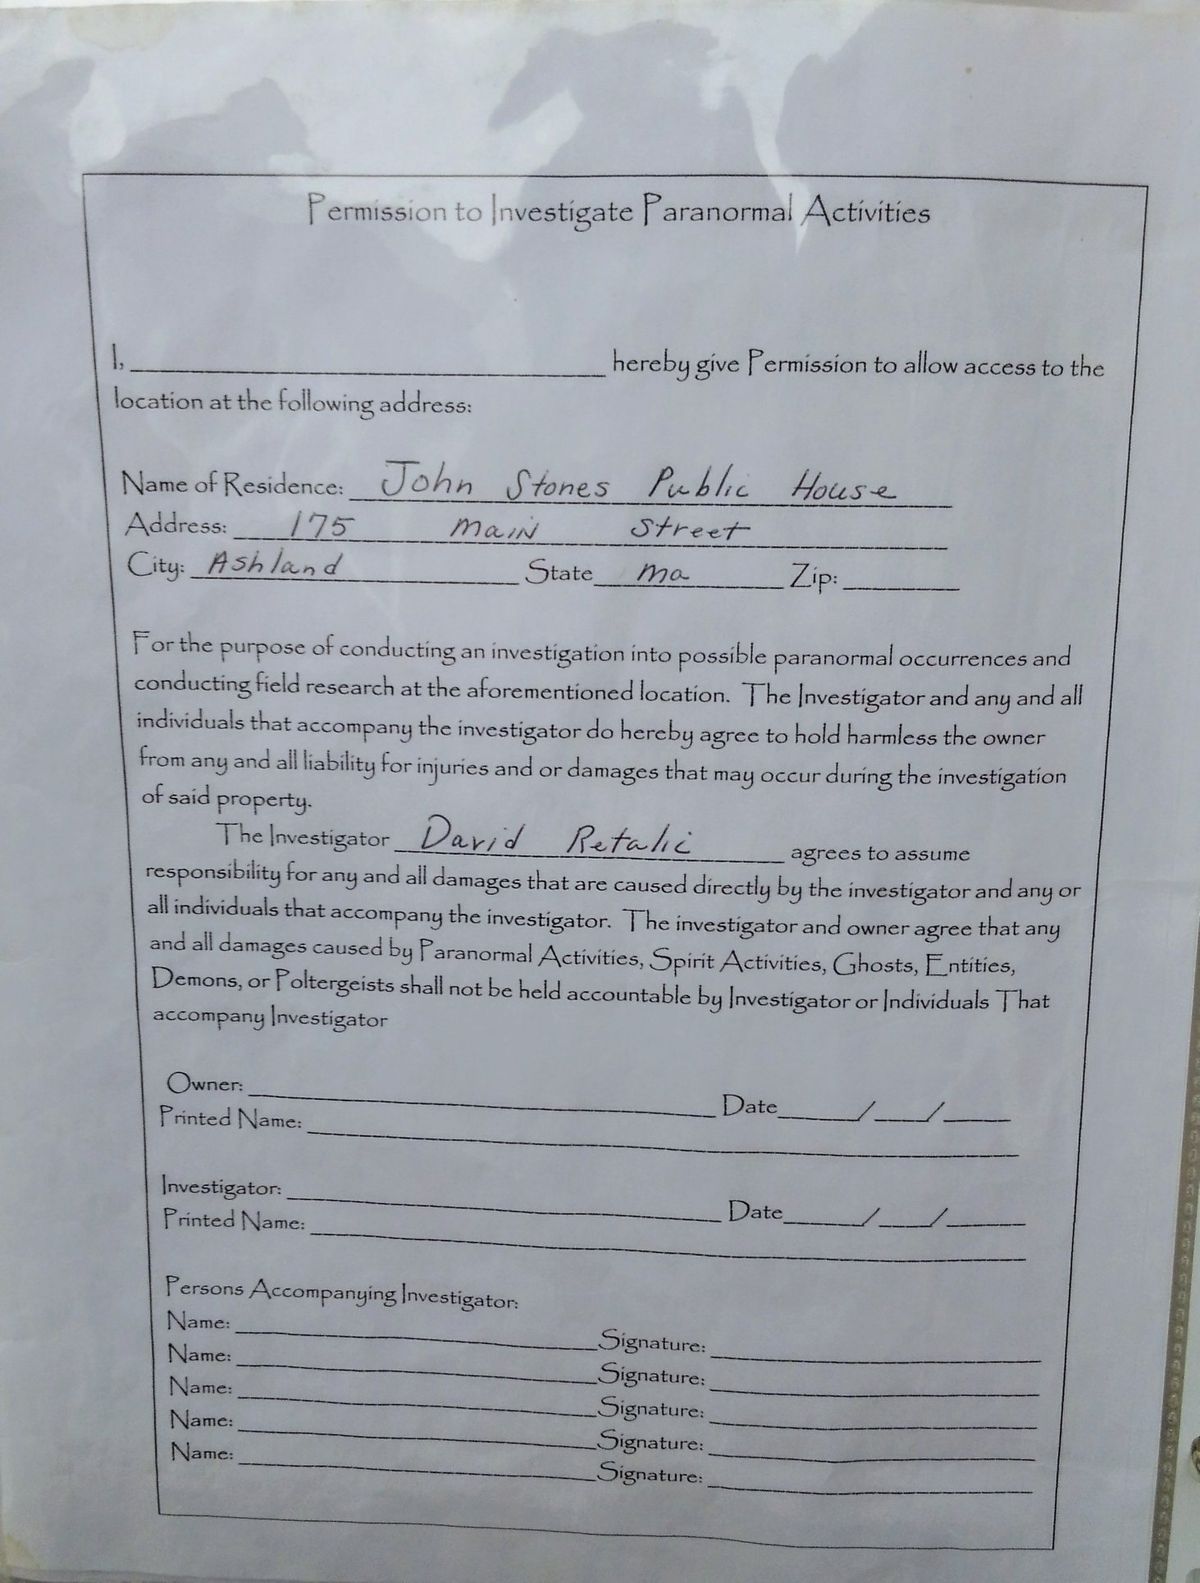 Permission to Investigate Paranormal Activities
I, ______________ hereby give Permission to allow access to the
location at the following address:
Name of Residence: John Stones Public House
Address: 175 Main Street
City: Ashland State Ma Zip: ______
For the purpose of conducting an investigation into possible paranormal occurrences and
conducting field research at the aforementioned location. The Investigator and any and all
individuals that accompany the investigator do hereby agree to hold harmless the owner
from any and all liability for injuries and or damages that may occur during the investigation
of said property.
The Investigator David Retalic agrees to assume
responsibility for any and all damages that are caused directly by the investigator and any or
all individuals that accompany the investigator. The investigator and owner agree that any
and all damages caused by Paranormal Activities, Spirit Activities, Ghosts, Entities,
Demons, or Poltergeists shall not be held accountable by Investigator or Individuals That
accompany Investigator
Owner: ______________ Date____/___/____
Printed Name: ______________
Investigator: ______________ Date____/___/____
Printed Name: ______________
Persons Accompanying Investigator:
Name: ______________Signature: ______________
Name: ______________Signature: ______________
Name: ______________Signature: ______________
Name: ______________Signature: ______________
Name: ______________Signature: ______________